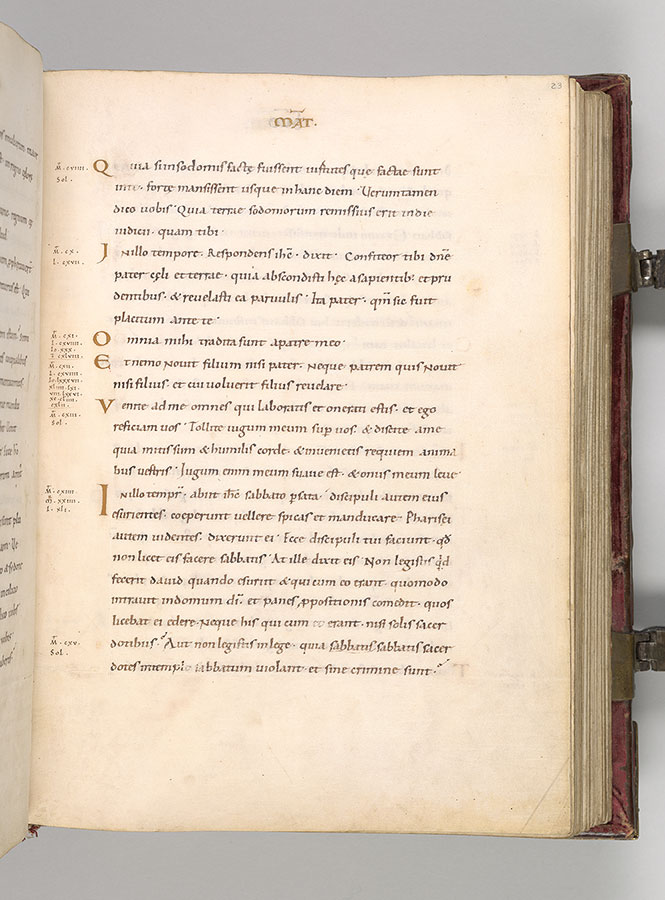 23
MAT̄.
Quia si insodomis factę fuissent uirtutes que factae sunt
in te· forte mansissent usque inhanc diem· Uerumtamen
dico uobis· Quia terrae sodomorum remissius erit indie
iudicii· quam tibi·
Inillo tempore· Respondens ihc̄· dixit· Confiteor tibi dn̄e
pater cęli et terrae· quia abscondisti hęc asapientib: et pru
dentibus· & reuelasti ea paruulis· Ita pater· qm̄ sic fuit
placitum ante te·
Omnia mihi tradita sunt apatre meo·
Et nemo nouit filium nisi pater· Neque patrem quis nouit
nisi filius· et cui uoluerit filius reuelare·
Venite ad me omnes qui laboratis et onerati estis· et ego
reficiam uos· Tollite iugum meum sup uos· & discite ame
quia mitis sum & humilis corde· & inuenietis requiem anima
bus uestris· Iugum enim meum suaue est· & onus meum leue·
Inillo tempr̄· abiit ihc̄ sabbato p sata· discipuli autem eius
esurientes· coeperunt uellere spicas et manducare· Pharisei
autem uidentes· dixerunt ei· Ecce discipuli tui faciunt· qd̄
non licet eis facere sabbatis· At ille dixit eis· Non legistis qd̄
fecerit dauid quando esuriit & qui cum eo erant· quomodo
intrauit indomum dī· et panes ppositionis comedit· quos
licebat ei edere· Neque his qui cum eo erant· nisi solis sacer
dotibus· Aut non legistis inlege· quia sabbatis sabbatis sacer
dotes intemplo sabbatum uiolant· et sine crimine sunt·
M̄. cxiii.
Sol.
M̄. cx.
L. cxvii.
M̄. cxi.
M̄. cxii.
M̄. cxiii.
Sol.
M̄. cxiiii.
m̄. xxiiii.
L. xli.
M̄. cxv.
Sol.